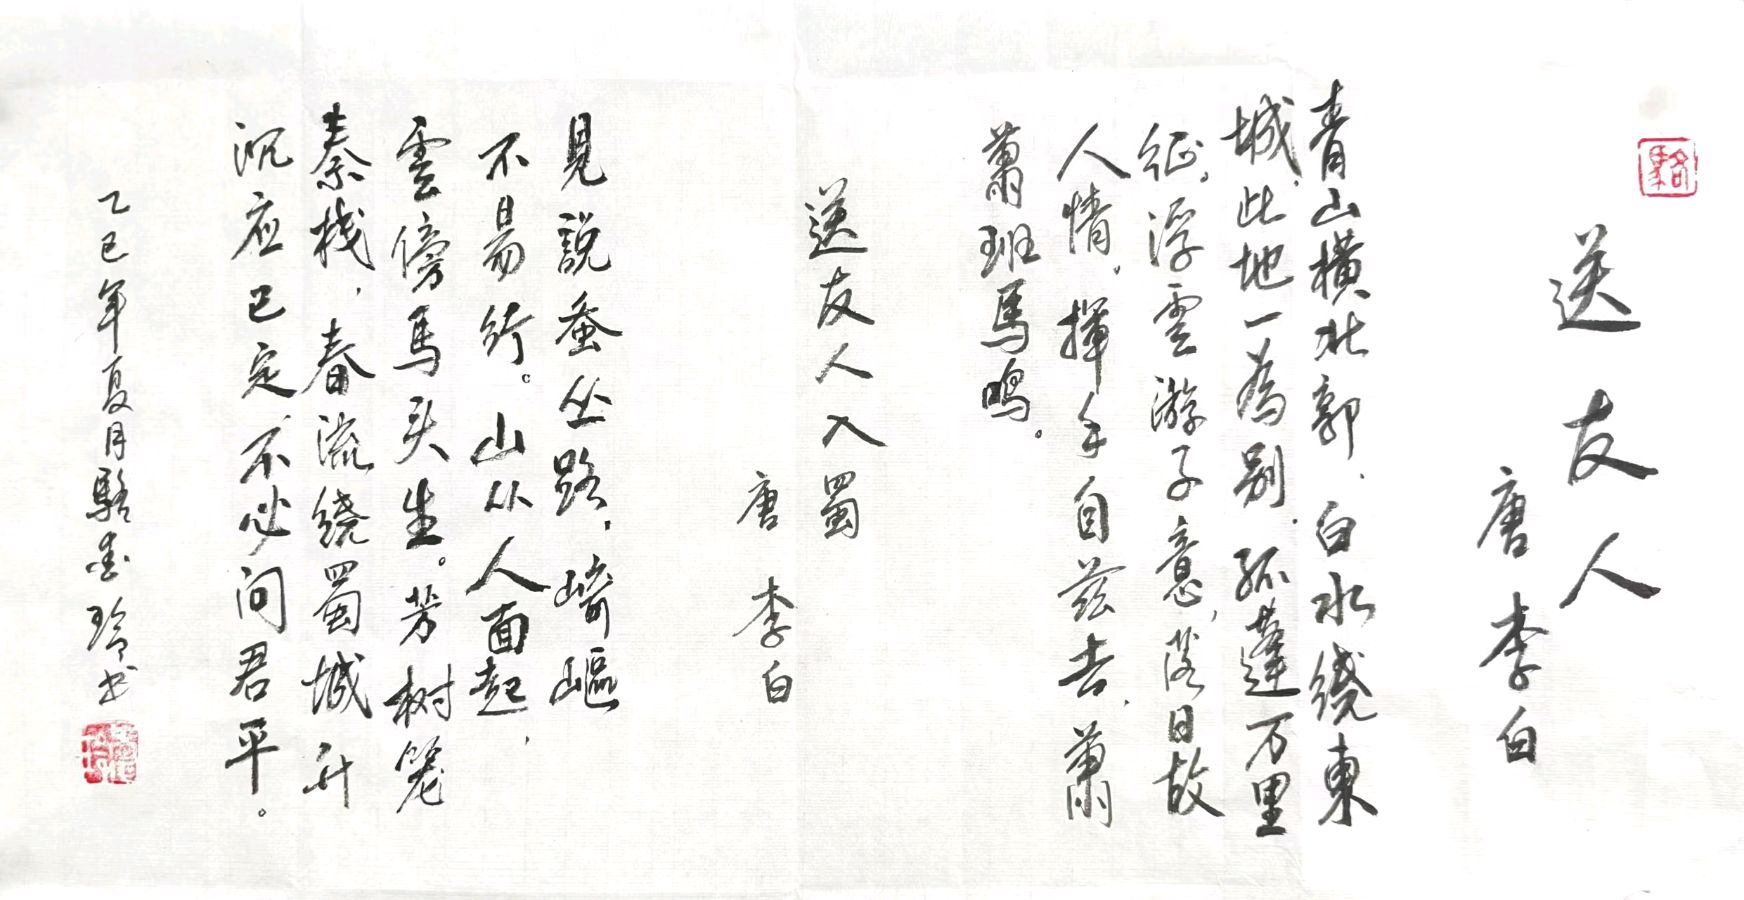 駱
送友人
唐 李白
青山橫北郭、白水绕東
城,此地一為别,孤蓬万里
征。浮雲游子意,落日故
人情,揮手自兹去,萧
萧班馬鸣。
送友人入蜀
唐 李白
見說蚕丛路,崎嶇
不易行。山从人面起,
雲傍馬头生。芳树笼
秦栈,春流绕蜀城升
沉应已定,不必问君平。
乙巳年夏月駱玲书